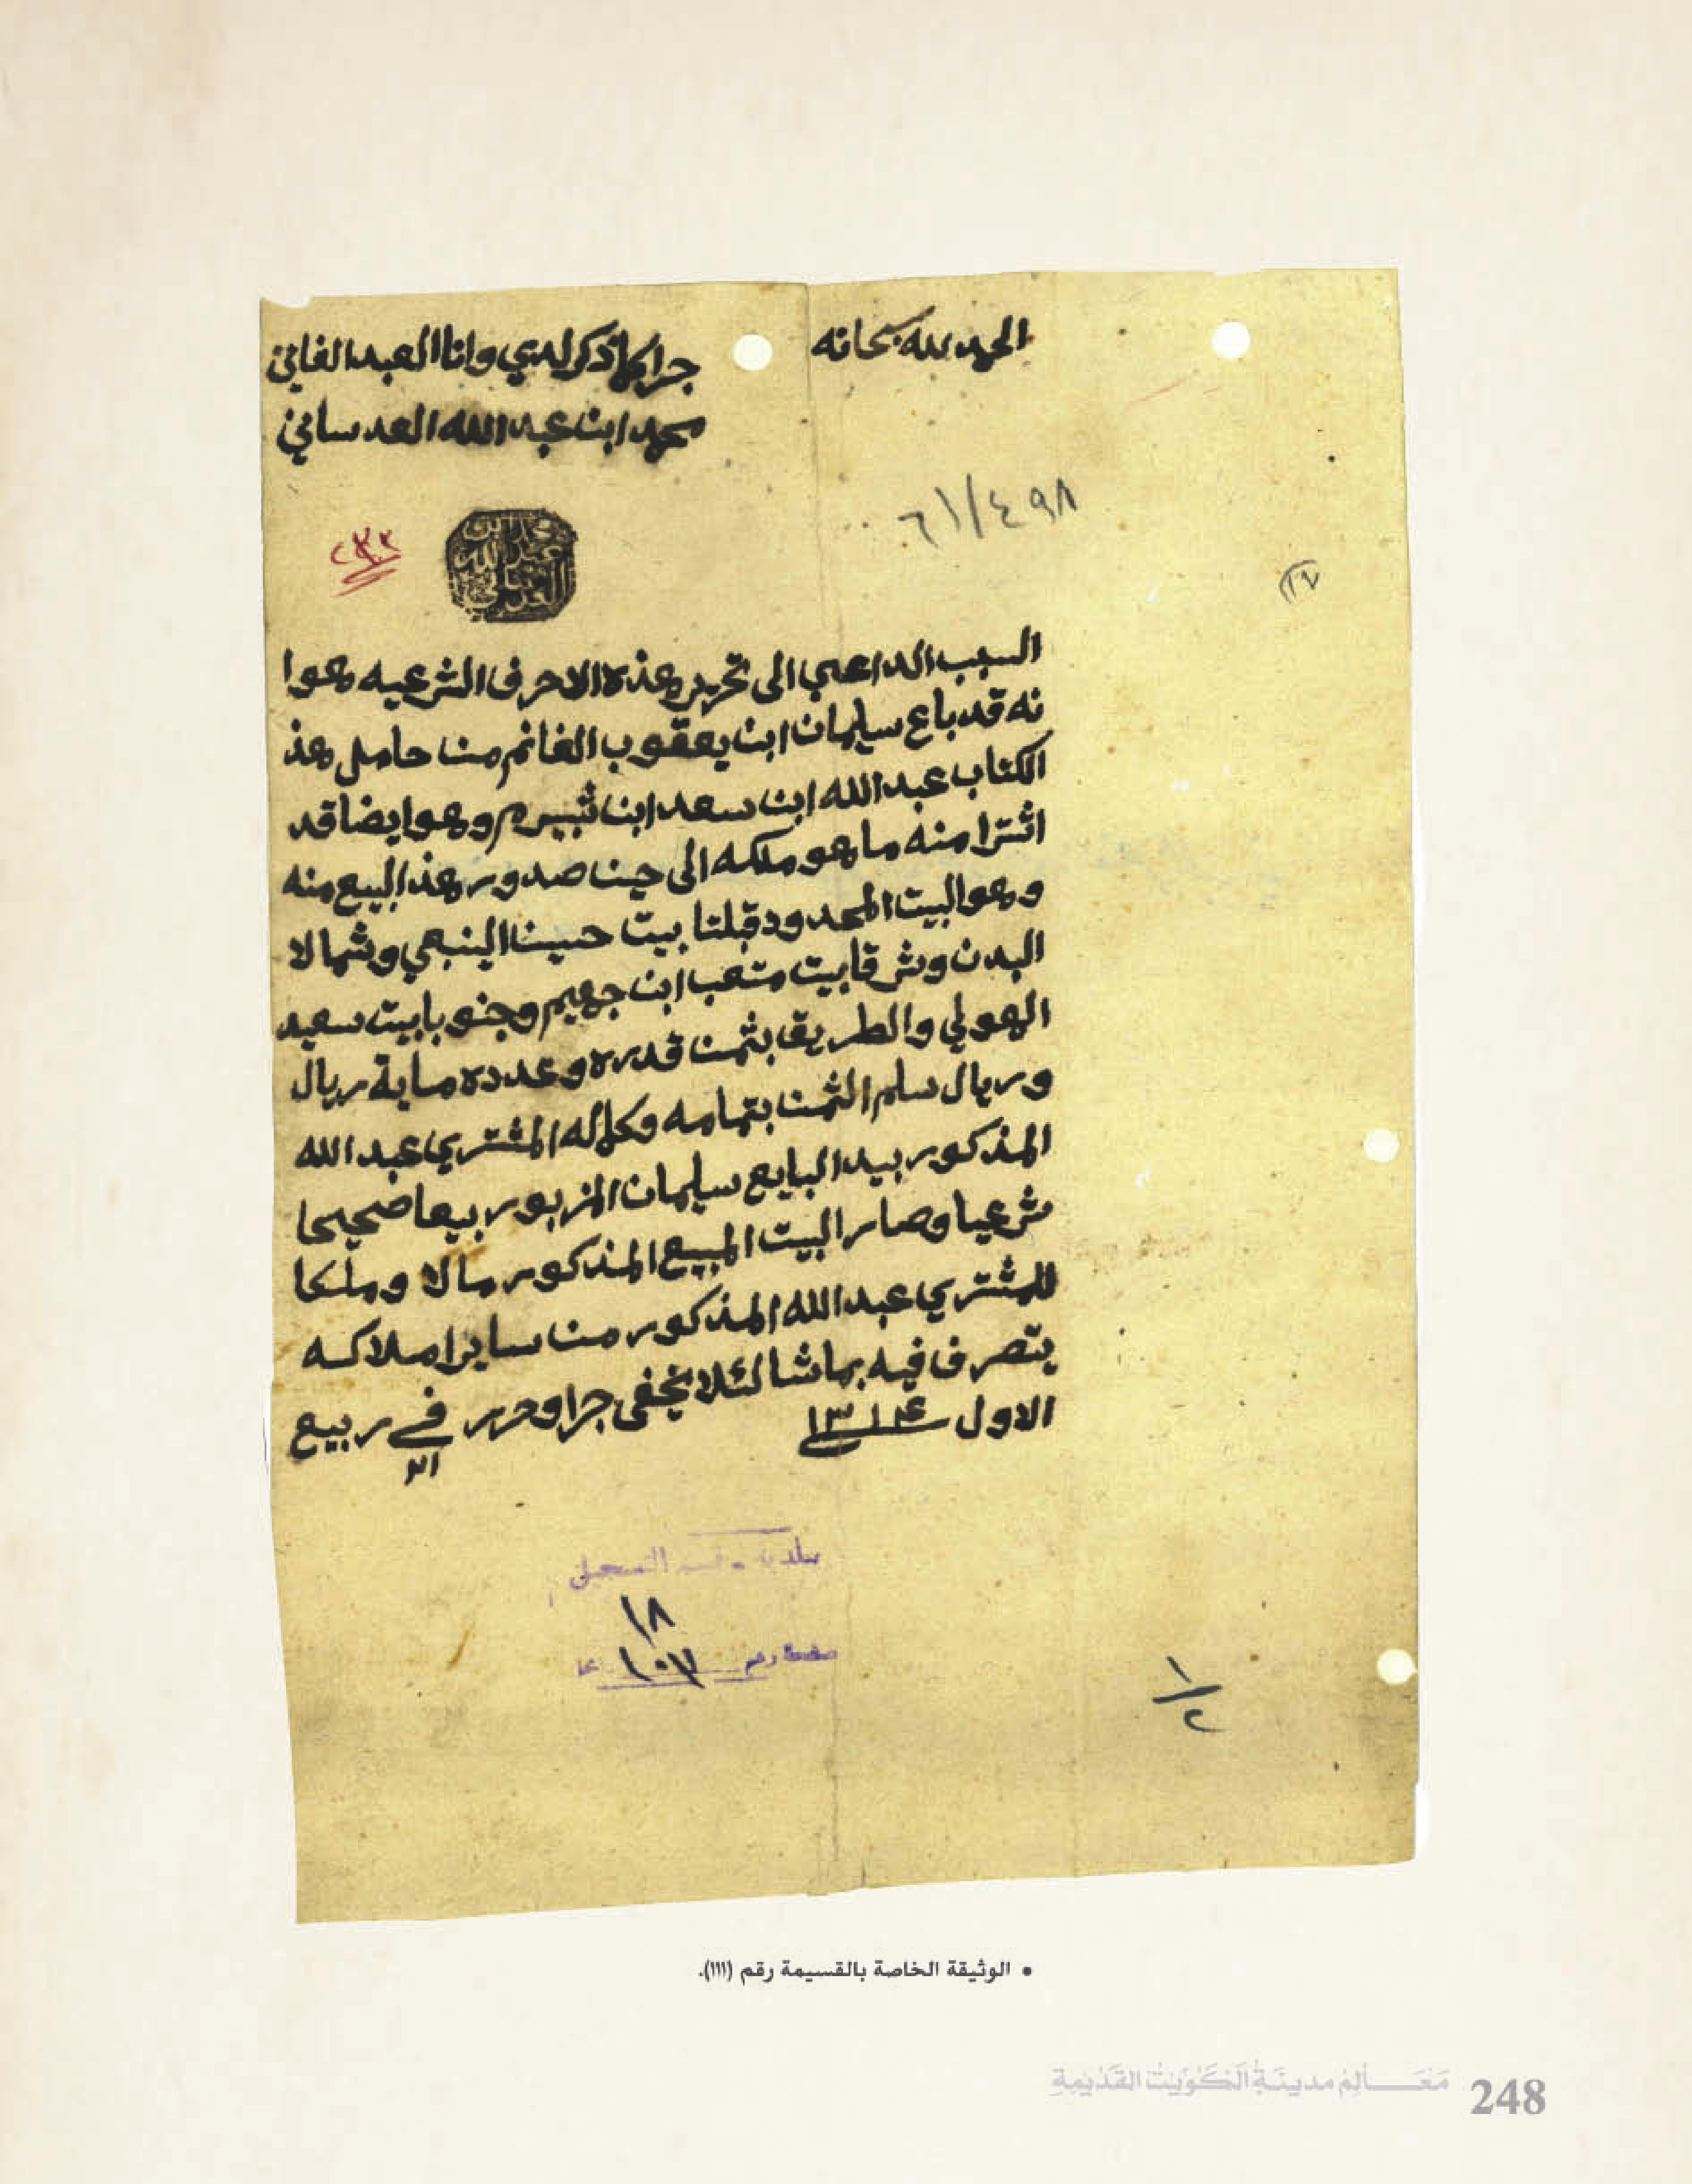 الحمد لله سبحانه
جرا كما ذكر لدي وانا العبد الفاني
محمد ابن عبد الله العدساني
٦١/٤٩٨
١٧
٢٣٢
السبب الداعي الى تحرير هذه الاحرف الشرعيه هوا
نه قد باع سليمان ابن يعقوب الغانم من حامل هذ
الكتاب عبد الله ابن سعد ابن شبيرم وهو ايضا قد
اشترا منه ما هو ملكه الى حين صدور هذ البيع منه
وهو البيت المحدود قبلتا بيت حسين الينبعي وشمالا
البدن وشرقا بيت متعب ابن جهيم وجنوبا بيت سعيد
الهولي والطريق بثمن قدره وعدده ماية ريال
وريال سلم الثمن بتمامه وكماله المشتري عبد الله
المذكور بيد البايع سليمان المزبور بيعا صحيحا
شرعيا وصار البيت المبيع المذكور مالا وملكا
للمشتري عبد الله المذكور من ساير املاكه
يتصرف فيه بما شا لئلا يخفى جرا وحرر في ربيع
الاول ١٣١٤
بلدية قسم التسجيل
١٨
صفحة رقم ١٠٧
١/٢
• الوثيقة الخاصة بالقسيمة رقم (١١١).
مَعَالِمُ مدينَةِ الكُوَيْتِ القَدِيمَةِ 248